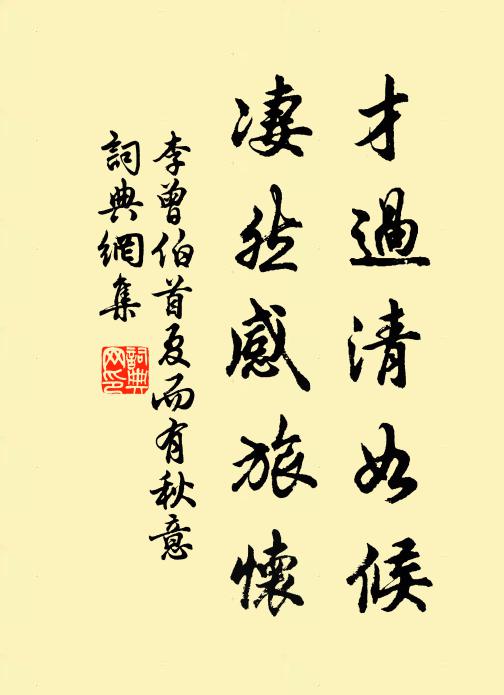 才過清如候
凄然感旅懷
李曾伯首夏而有秋意
詞典網集
詞典网印